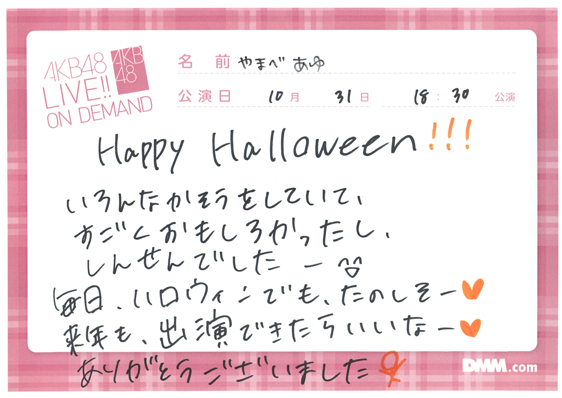 AKB48
LIVE!!
ON DEMAND
AKB
48
名前 やまべ あゆ
公演日 10月 31日 18:30 公演
Happy Halloween!!!
いろんなかそうをしていて、
すごくおもしろかったし、
しんせんでしたー
毎日、ハロウィンでも、たのしそー
来年も、出演できたらいいなー
ありがとうございました
DMM.com